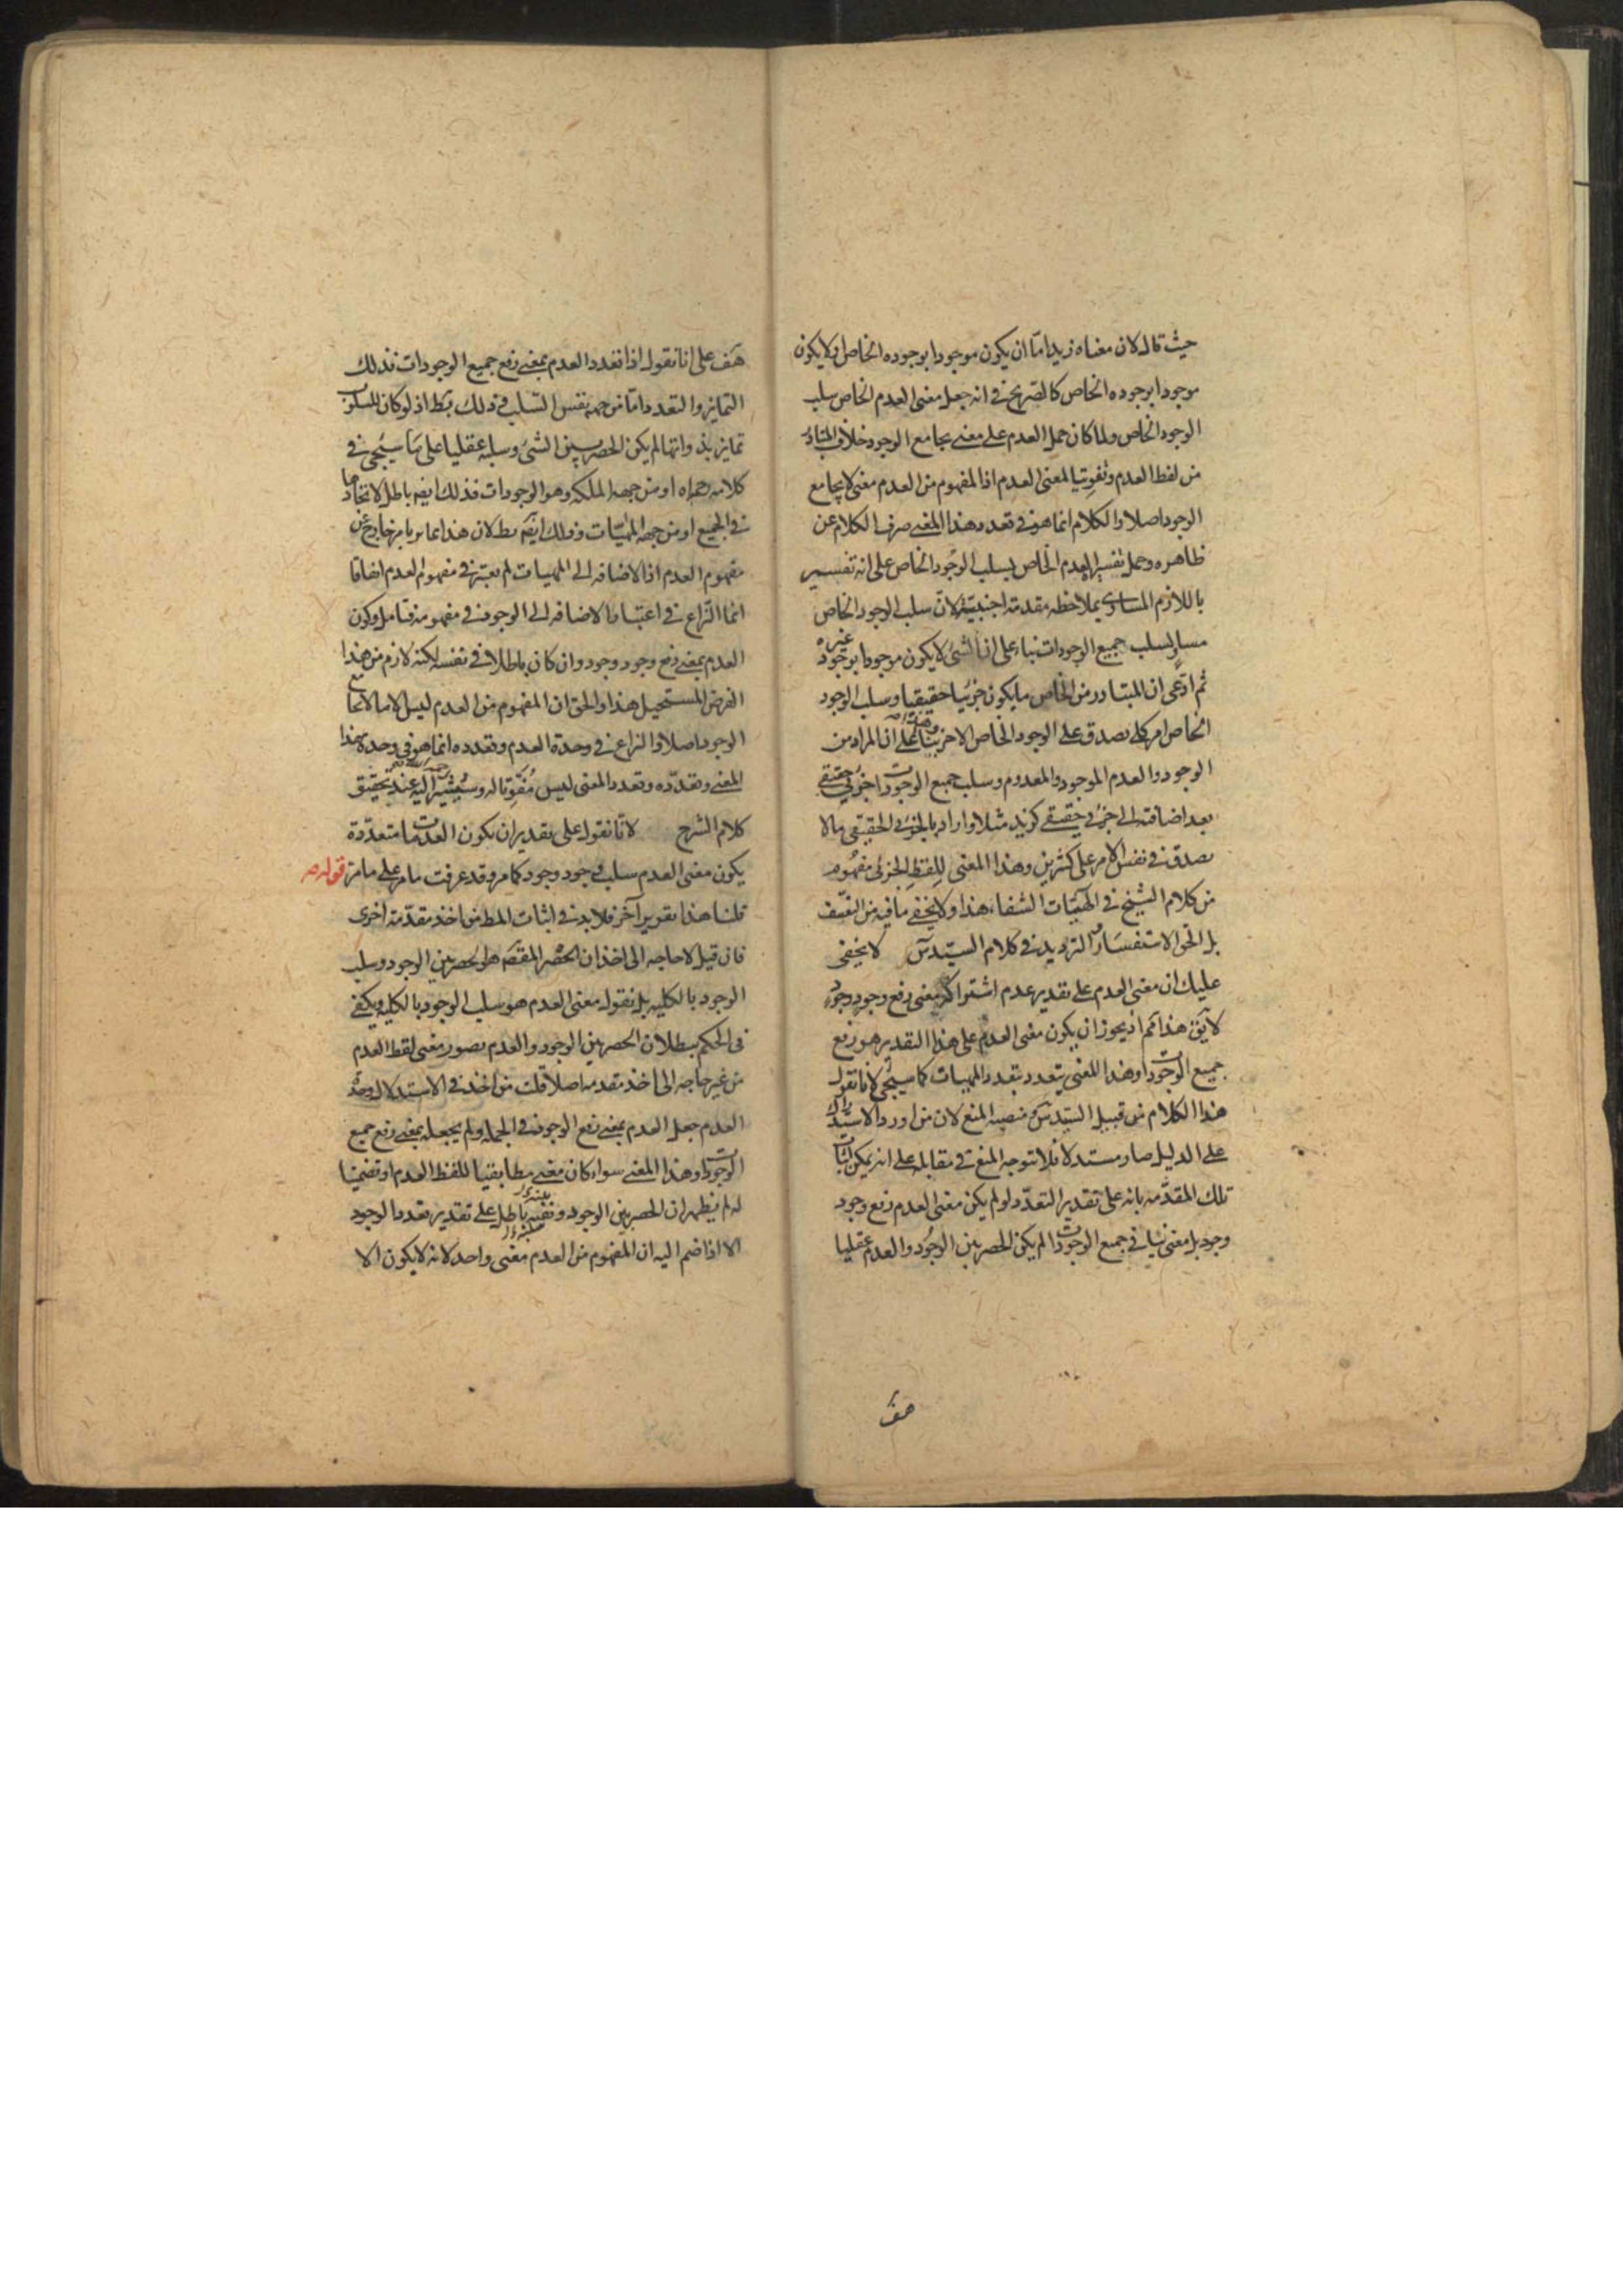 حيث قال لان معناه زيد اما ان يكون موجودا بوجوده الخاص او لا يكون
موجودا بوجوده الخاص كالصريح في انه جعل معنى العدم الخاص سلب
الوجود الخاص ولما كان حمل العدم على معنى يجامع الوجود خلاف المتبادر
من لفظ العدم وتفويتا لمعنى العدم اذ المفهوم من العدم معنى لا يجامع
الوجود اصلا والكلام انما هو في تعدد هذا المعنى صرف الكلام عن
ظاهره وحمل تفسير العدم الخاص بسلب الوجود الخاص على انه تفسير
باللازم المساوي بملاحظه مقدمة اجنبية لان سلب الوجود الخاص
مساو لسلب جميع الوجودات بناء على ان الشئ لا يكون موجودا بوجود غيره
ثم ادعى ان المتبادر من الخاص ما يكون جزئيا حقيقيا وسلب الوجود
الخاص امر كلي يصدق على الوجود الخاص الاخر بناء على ان المراد من
الوجود والعدم الموجود والمعدوم وسلب جميع الوجودات جزئي حقيقي
بعد اضافته الى جزئي حقيقي كزيد مثلا واراد بالجزئي الحقيقي ما لا
يصدق في نفس الامر على كثيرين وهذا المعنى للفظ الجزئي مفهوم
من كلام الشيخ في الهيات الشفاء هذا ولا يخفى ما فيه من التعسف
بل الحق الاستفسار والترديد في كلام السيد س لا يخفى
عليك ان معنى العدم على تقدير عدم اشتراكه معنى رفع وجود وجود
لا يق هذا مم اذ يجوز ان يكون معنى العدم على هذا التقدير هو رفع
جميع الوجودات وهذا المعنى يتعدد بتعدد المهيات كما سيجئ لانا نقول
هذا الكلام من قبيل السيد س منصبه المنع لان من اورد الاستدلال
على الدليل صار مستدلا فلا تتوجه المنع في مقابله على انه يمكن اثبات
تلك المقدمة بانه على تقدير التعدد لو لم يكن معنى العدم رفع وجود
وجود بل معنى ينافي جميع الوجودات لم يكن الحصر بين الوجود والعدم عقليا
هف
هف على انا نقول اذا تعدد العدم بمعنى رفع جميع الوجودات فذلك
التمايز والتعدد اما من جهة نفس السلب وذلك بط اذ لو كان للسلوب
تمايز بذواتها لم يكن الحصر بين الشئ وسلبه عقليا على ما سيجئ في
كلامه رحمه الله او من جهه الملكه وهو الوجودات فذلك ايضا باطل لاتحادها
في الجميع او من جهه المهيات وذلك ايض بط لان هذا تمايز بامر خارج عن
مفهوم العدم اذ الاضافه الى المهيات لم تعتبر في مفهوم العدم اتفاقا
انما النزاع في اعتبار الاضافه الى الوجود في مفهومه فتامل وكون
العدم بمعنى رفع وجود وجود وان كان باطلا في نفسه لكنه لازم من هذا
الفرض المستحيل هذا والحق ان المفهوم من العدم ليس الا ما لا يجامع
الوجود اصلا والنزاع في وحدة العدم وتعدده انما هو في وحدة هذا
المعنى وتعدده وتعدد المعنى ليس مفوتا له وسيشير اليه عند تحقيق
كلام الشرح لانا نقول على تقدير ان يكون العدمات متعددة
يكون معنى العدم سلب وجود وجود كما مر وقد عرفت ما مر على ما مر قوله
قلنا هذا تقرير آخر فلا بد في اثبات المط من اخذ مقدمة اخرى
فان قيل لا حاجه الى اخذ ان الحصر المقصود هو الحصر بين الوجود وسلب
الوجود بالكليه بل نقول معنى العدم هو سلب الوجود بالكليه ويكفي
في الحكم ببطلان الحصر بين الوجود والعدم تصور معنى لفظ العدم
من غير حاجه الى اخذ مقدمه اصلا قلت من اخذ في الاستدلال وحدة
العدم جعل العدم بمعنى رفع الوجود في الجمله ولم يجعله بمعنى رفع جميع
الوجودات وهذا المعنى سواء كان معنى مطابقيا للفظ العدم او تضمنيا
له لم يظهر ان الحصر بين الوجود ونفيه باطل على تقدير تعدد الوجود
الا اذا ضم اليه ان المفهوم من العدم معنى واحد لانه لا يكون الا